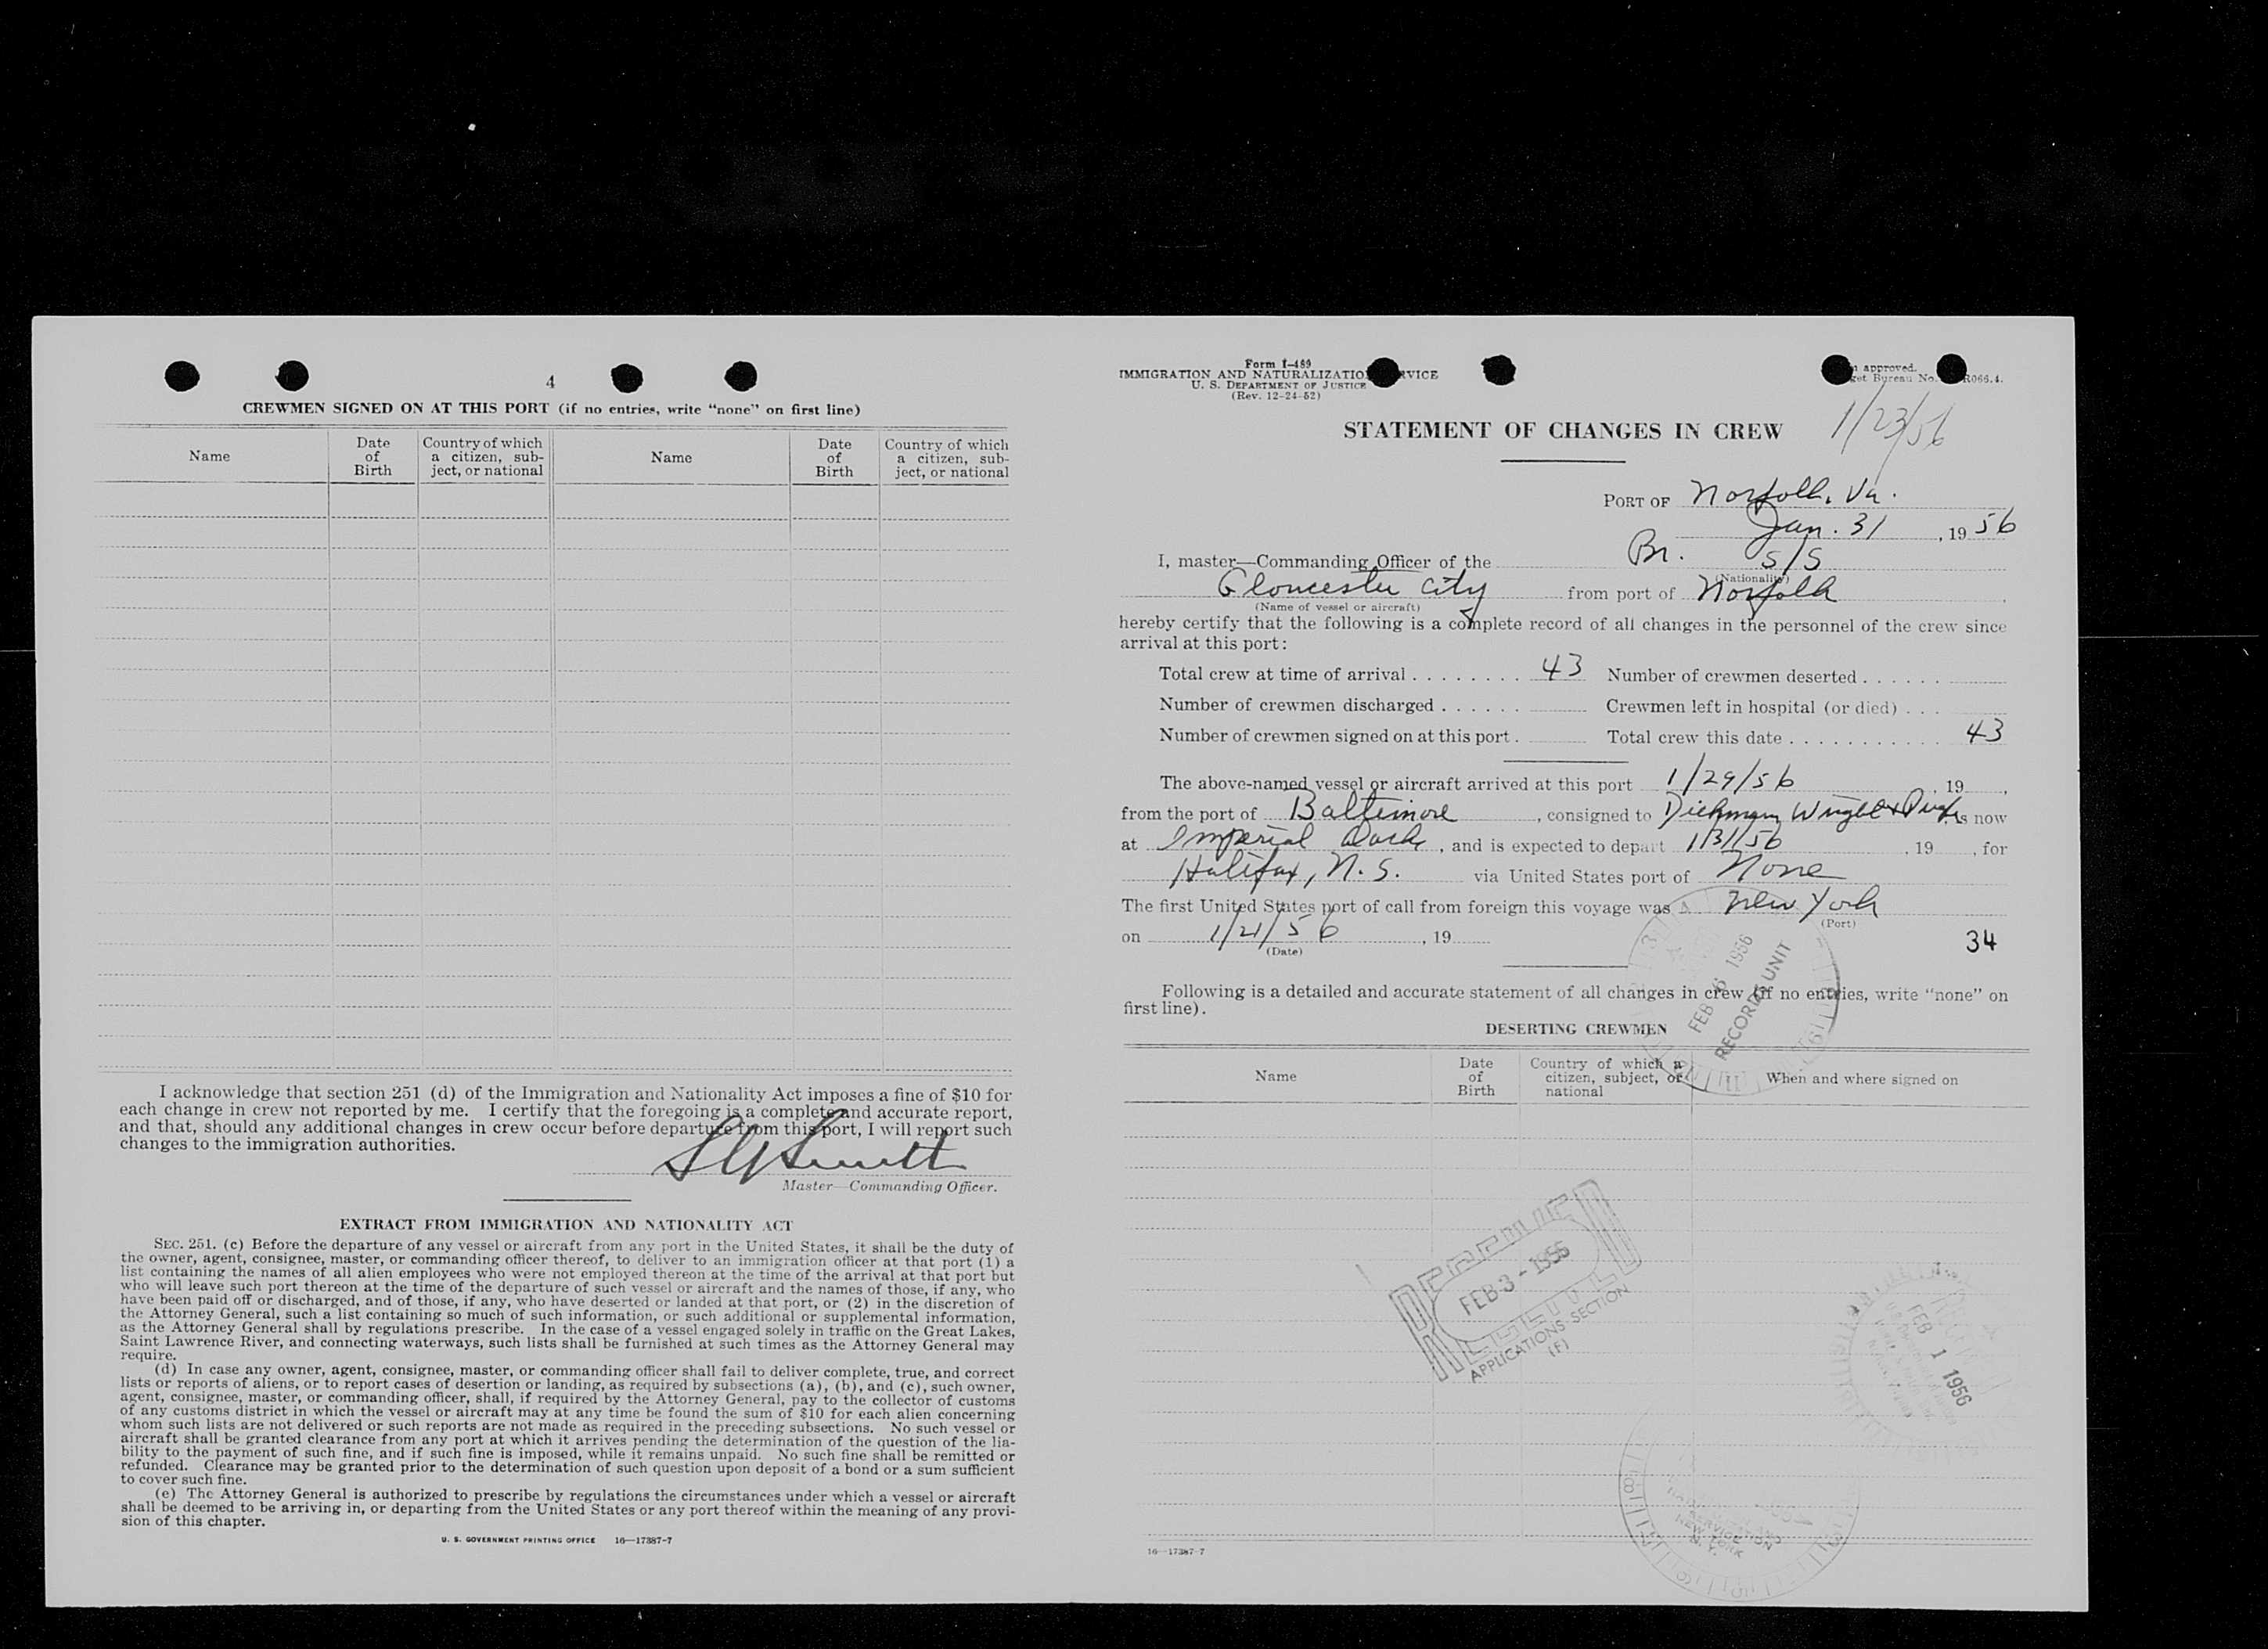 4
CREWMEN SIGNED ON AT THIS PORT (if no entries, write "none" on first line)
Name
Date of Birth
Country of which a citizen, subject, or national
Name
Date of Birth
Country of which a citizen, subject, or national
I acknowledge that section 251 (d) of the Immigration and Nationality Act imposes a fine of $10 for
each change in crew not reported by me. I certify that the foregoing is a complete and accurate report,
and that, should any additional changes in crew occur before departure from this port, I will report such
changes to the immigration authorities.
Master—Commanding Officer.
EXTRACT FROM IMMIGRATION AND NATIONALITY ACT
SEC. 251. (c) Before the departure of any vessel or aircraft from any port in the United States, it shall be the duty of
the owner, agent, consignee, master, or commanding officer thereof, to deliver to an immigration officer at that port (1) a
list containing the names of all alien employees who were not employed thereon at the time of the arrival at that port but
who will leave such port thereon at the time of the departure of such vessel or aircraft and the names of those, if any, who
have been paid off or discharged, and of those, if any, who have deserted or landed at that port, or (2) in the discretion of
the Attorney General, such a list containing so much of such information, or such additional or supplemental information,
as the Attorney General shall by regulations prescribe. In the case of a vessel engaged solely in traffic on the Great Lakes,
Saint Lawrence River, and connecting waterways, such lists shall be furnished at such times as the Attorney General may
require.
(d) In case any owner, agent, consignee, master, or commanding officer shall fail to deliver complete, true, and correct
lists or reports of aliens, or to report cases of desertion or landing, as required by subsections (a), (b), and (c), such owner,
agent, consignee, master, or commanding officer, shall, if required by the Attorney General, pay to the collector of customs
of any customs district in which the vessel or aircraft may at any time be found the sum of $10 for each alien concerning
whom such lists are not delivered or such reports are not made as required in the preceding subsections. No such vessel or
aircraft shall be granted clearance from any port at which it arrives pending the determination of the question of the lia-
bility to the payment of such fine, and if such fine is imposed, while it remains unpaid. No such fine shall be remitted or
refunded. Clearance may be granted prior to the determination of such question upon deposit of a bond or a sum sufficient
to cover such fine.
(e) The Attorney General is authorized to prescribe by regulations the circumstances under which a vessel or aircraft
shall be deemed to be arriving in, or departing from the United States or any port thereof within the meaning of any provi-
sion of this chapter.
U. S. GOVERNMENT PRINTING OFFICE 16—17387-7
Form I-489
IMMIGRATION AND NATURALIZATIO RVICE
U. S. DEPARTMENT OF JUSTICE
(Rev. 12-24-52)
approved.
get Bureau No. R066.4.
STATEMENT OF CHANGES IN CREW
1/23/56
PORT OF Norfolk, Va.
Jan. 31, 1956
I, master—Commanding Officer of the Br. S/S
(Nationality)
Gloucester City from port of Norfolk
(Name of vessel or aircraft)
hereby certify that the following is a complete record of all changes in the personnel of the crew since
arrival at this port:
Total crew at time of arrival 43 Number of crewmen deserted
Number of crewmen discharged Crewmen left in hospital (or died)
Number of crewmen signed on at this port Total crew this date 43
The above-named vessel or aircraft arrived at this port 1/29/56, 19
from the port of Baltimore, consigned to Wright & Pugh, is now
at Imperial Dock, and is expected to depart 1/31/56, 19, for
Halifax, N. S. via United States port of None
The first United States port of call from foreign this voyage was New York
(Port)
on 1/21/56, 19
(Date)
34
Following is a detailed and accurate statement of all changes in crew (if no entries, write "none" on
first line).
FEB 6 1956
RECORDS UNIT
DESERTING CREWMEN
Name
Date of Birth
Country of which a citizen, subject, or national
When and where signed on
RECEIVED
FEB 3 - 1956
APPLICATIONS SECTION
(F)
FEB 1 1956
SERVICE
NEW YORK
N. Y.
16—17387-7